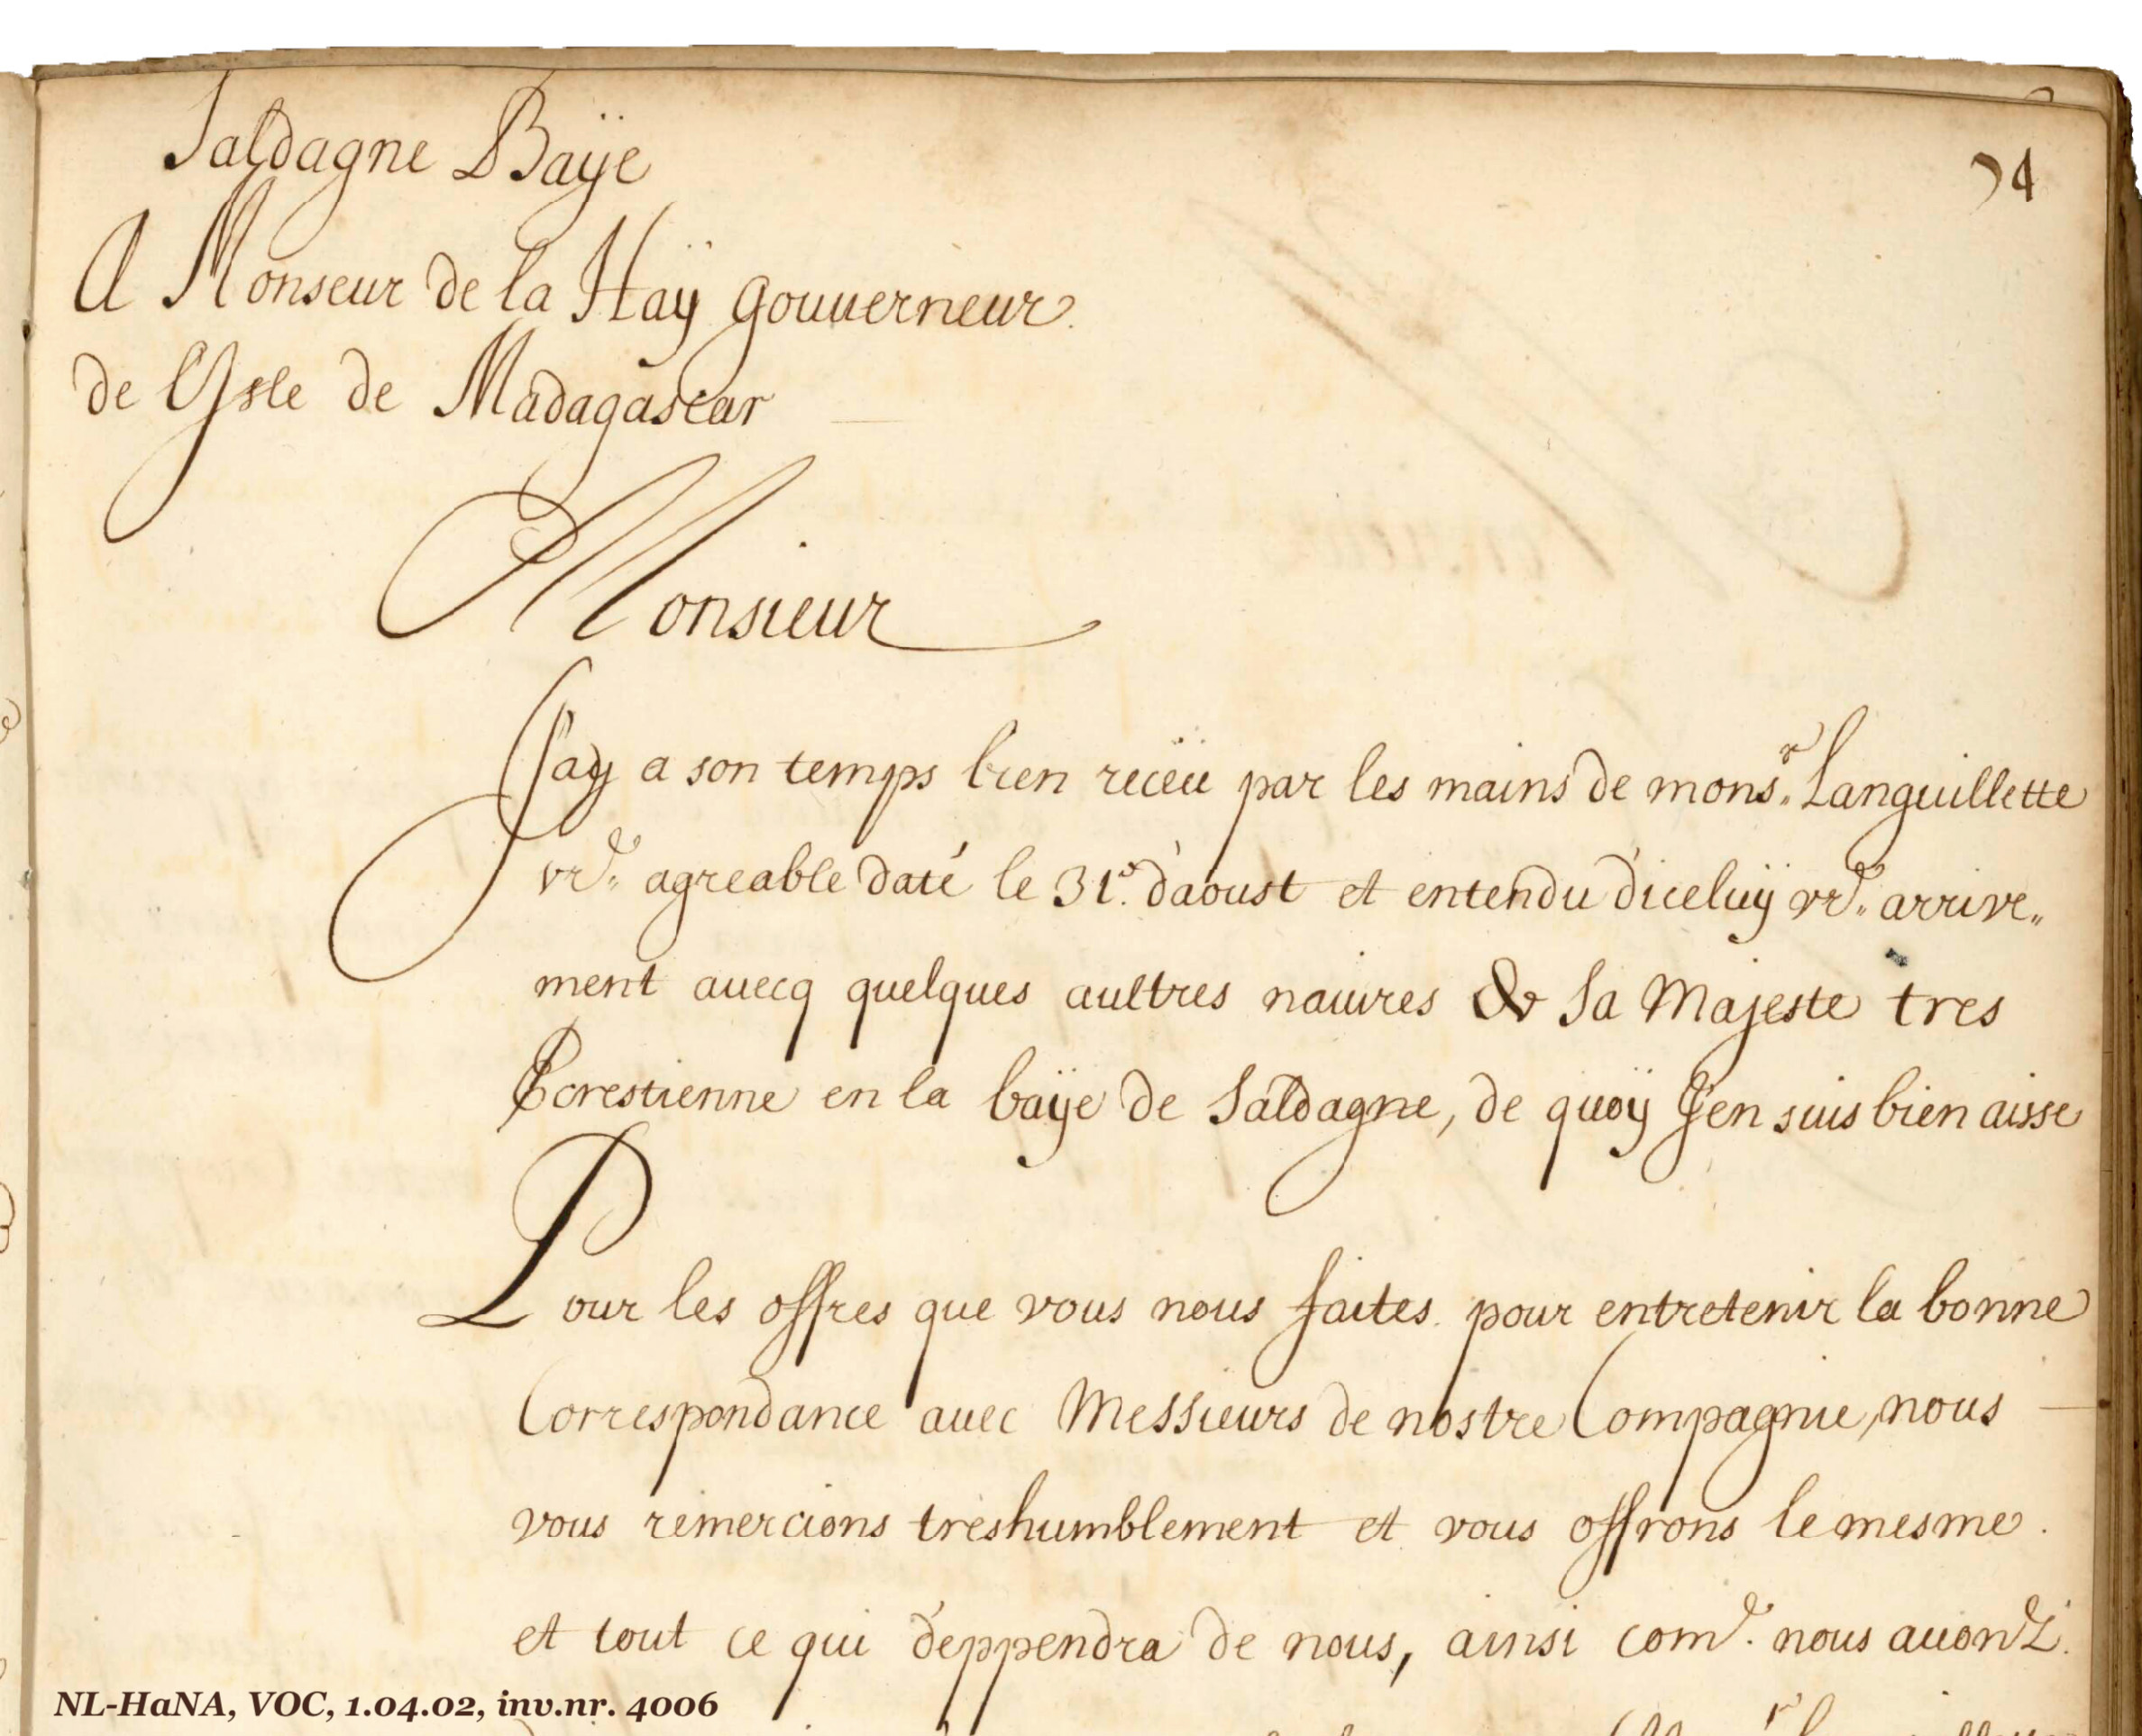 Saldagne Baÿe
94
A Monseur de la Haÿ gouuerneur.
de l'Isle de Madagascar
Monsieur
J'ay a son temps bien receü par les mains de mons.r Languillette
vre. agreable daté le 31.e d'aoust et entendu d'iceluÿ vre. arrive„
ment auecq quelques aultres nauires de Sa Majeste tres
Chrestienne en la baÿe de Saldagne, de quoÿ J'en suis bien aisse
Pour les offres que vous nous faites pour entretenir la bonne
Correspondance auec Messieurs de nostre Compagnie, nous
vous remercions treshumblement et vous offrons le mesme.
et tout ce qui deppendra de nous, ainsi come. nous auons
NL-HaNA, VOC, 1.04.02, inv.nr. 4006